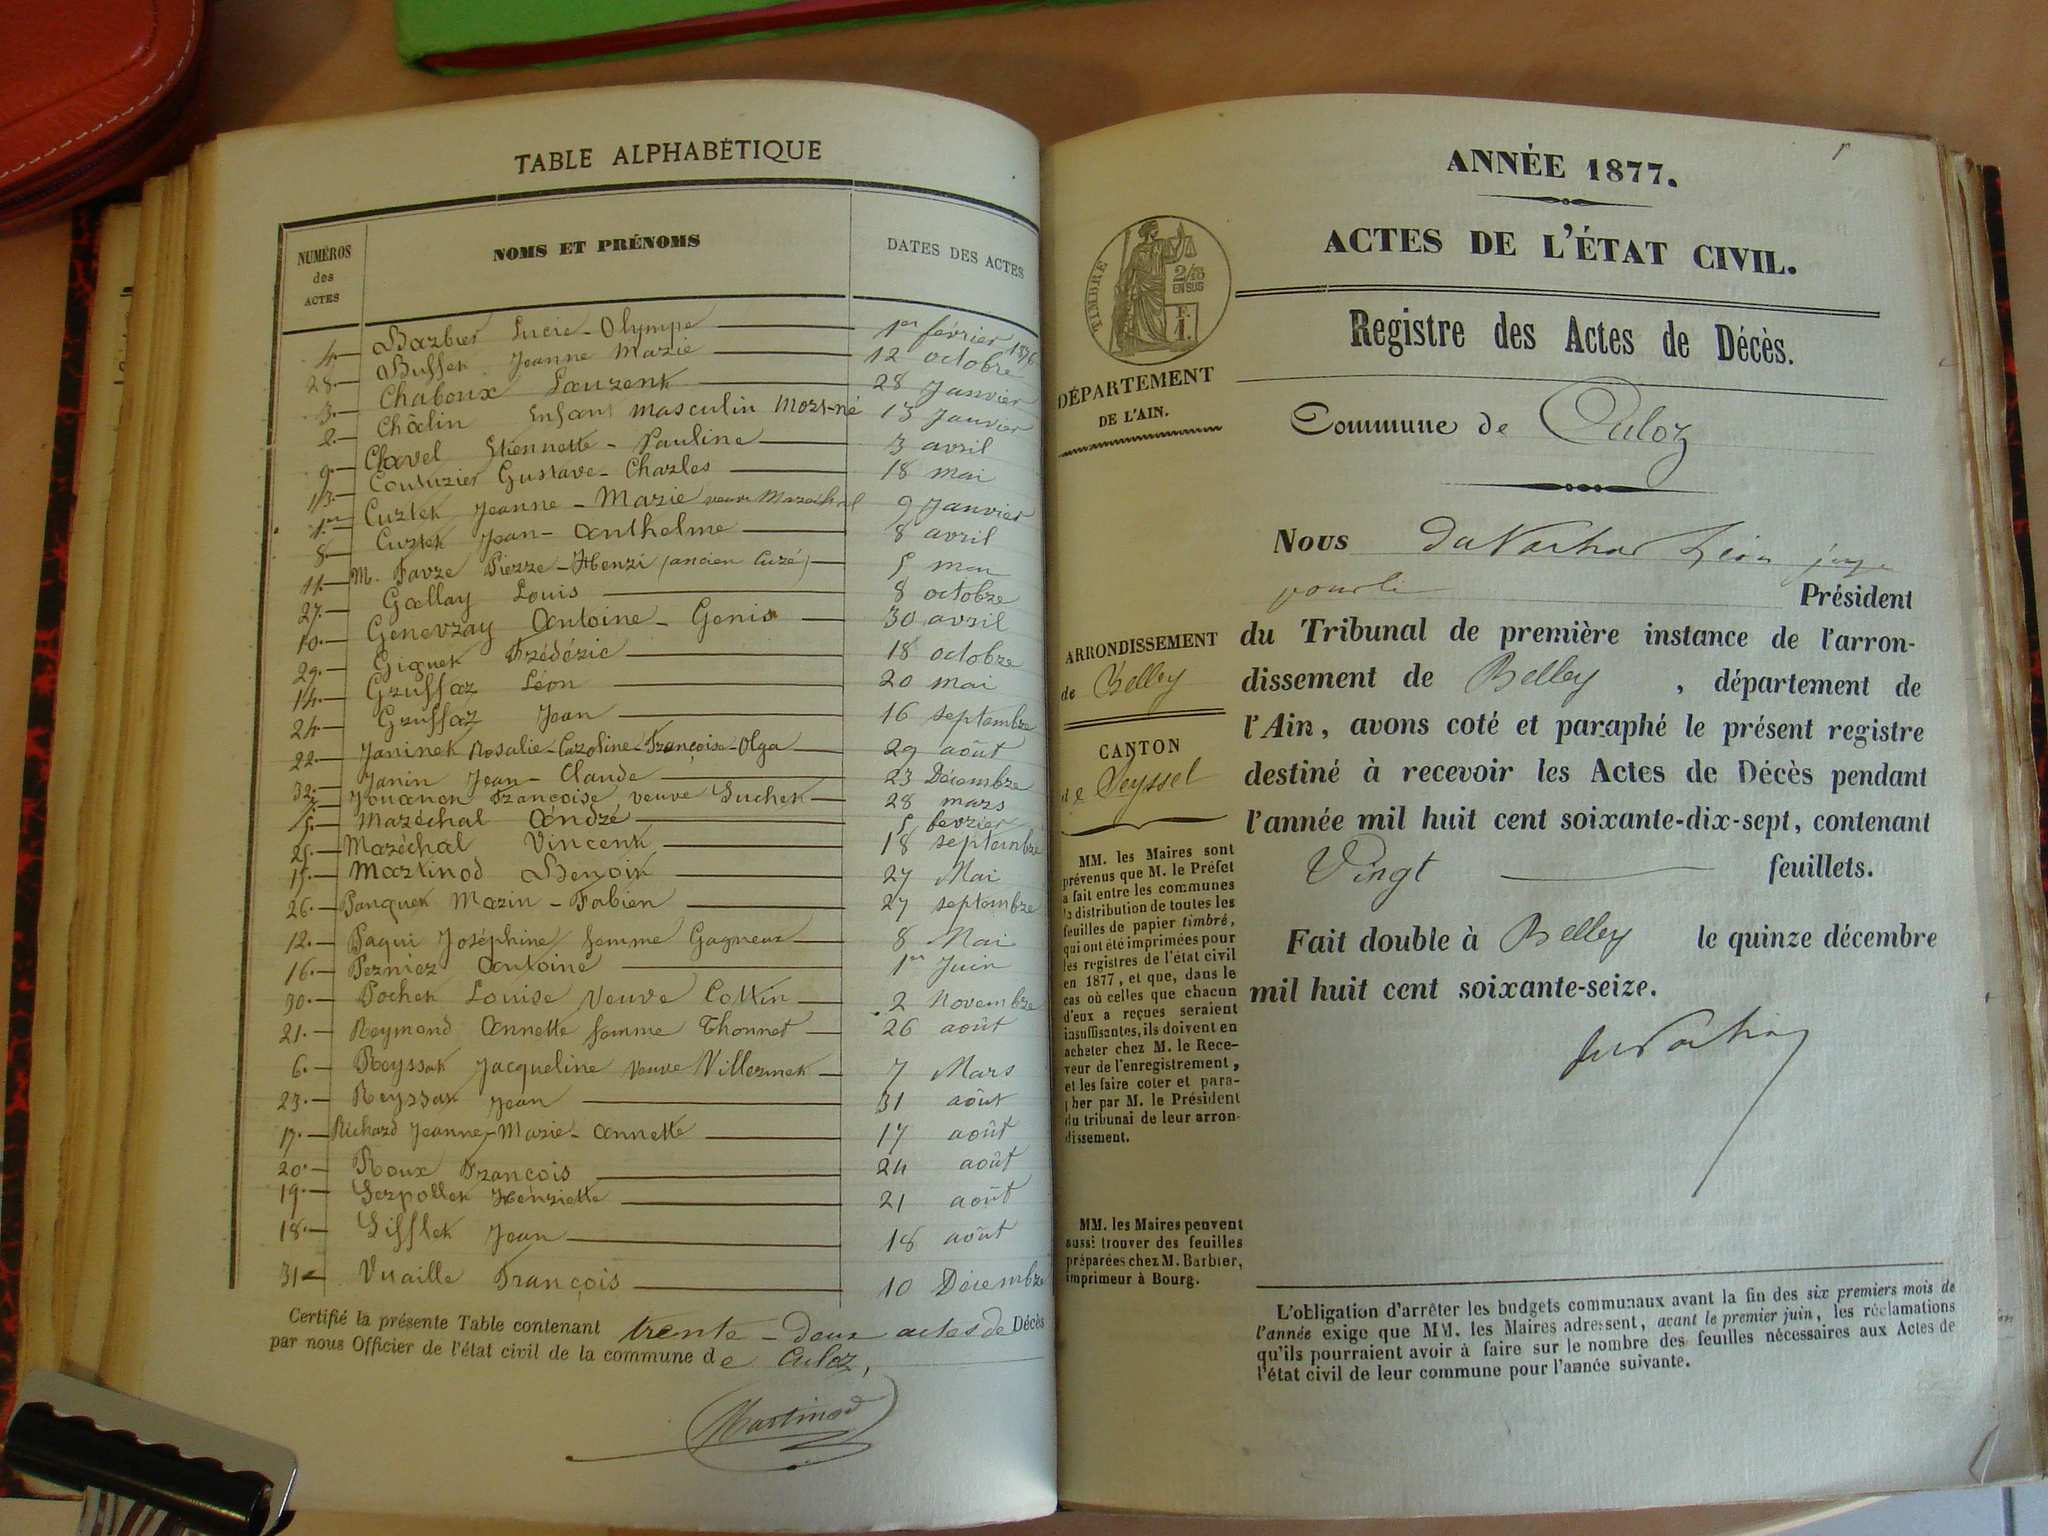 TABLE ALPHABÉTIQUE
NUMÉROS des ACTES
NOMS ET PRÉNOMS
DATES DES ACTES
4. Barbier Lucie-Olympe 1er février 1876
28 Buffet Jeanne Marie 12 octobre
3. Chaboux Laurent 28 Janvier
2. Châlin Enfant masculin Mort-né 13 Janvier
9. Clavel Etiennette-Pauline 3 avril
13. Couturier Gustave-Charles 18 mai
1er Curtet Jeanne-Marie veuve Maréchal 9 Janvier
8. Curtet Jean-Anthelme 8 avril
11. M. Favre Pierre-Henri (ancien Curé) 5 mai
27. Gallay Louis 8 octobre
10. Genevray Antoine-Genis 30 avril
29. Giguet Frédéric 18 octobre
14. Gruffaz Léon 20 mai
24. Gruffaz Jean 16 septembre
22. Janinet Rosalie-Caroline-Françoise-Olga 29 août
32. Janin Jean-Claude 23 Décembre
Jouanon Françoise, veuve Suchet 28 mars
5. Maréchal André 5 février
25. Maréchal Vincent 18 septembre
15. Martinod Benoit 27 Mai
26. Panquet Marin-Fabien 27 septembre
12. Paqui Joséphine femme Gagneux 8 Mai
16. Pernier Antoine 1er Juin
30. Pochet Louise Veuve Cottin 2 Novembre
21. Reymond Annette femme Thonnet 26 août
6. Reyssat Jacqueline Veuve Villermet 7 Mars
23. Reyssat Jean 31 août
17. Richard Jeanne-Marie-Annette 17 août
20. Roux François 24 août
19. Serpollet Henriette 21 août
18. Sifflet Jean 18 août
31 Vuaille François 10 Décembre
Certifié la présente Table contenant trente-deux actes de Décès
par nous Officier de l'état civil de la commune de Culoz,
Martinod
ANNÉE 1877.
ACTES DE L'ÉTAT CIVIL.
TIMBRE
2/10
EN SUS
F.
1.
Registre des Actes de Décès.
DÉPARTEMENT
DE L'AIN.
Commune de Culoz
Nous Léon juge
Président
du Tribunal de première instance de l'arron-
dissement de Belley, département de
l'Ain, avons coté et paraphé le présent registre
destiné à recevoir les Actes de Décès pendant
l'année mil huit cent soixante-dix-sept, contenant
Vingt feuillets.
Fait double à Belley le quinze décembre
mil huit cent soixante-seize.
ARRONDISSEMENT
de Belley
CANTON
de Seyssel
MM. les Maires sont
prévenus que M. le Préfet
a fait entre les communes
la distribution de toutes les
feuilles de papier timbré,
qui ont été imprimées pour
les registres de l'état civil
en 1877, et que, dans le
cas où celles que chacun
d'eux a reçues seraient
insuffisantes, ils doivent en
acheter chez M. le Rece-
veur de l'enregistrement,
et les faire coter et para-
pher par M. le Président
du tribunal de leur arron-
dissement.
MM. les Maires peuvent
aussi trouver des feuilles
préparées chez M. Barbier,
imprimeur à Bourg.
L'obligation d'arrêter les budgets communaux avant la fin des six premiers mois de
l'année exige que MM. les Maires adressent, avant le premier juin, les réclamations
qu'ils pourraient avoir à faire sur le nombre des feuilles nécessaires aux Actes de
l'état civil de leur commune pour l'année suivante.